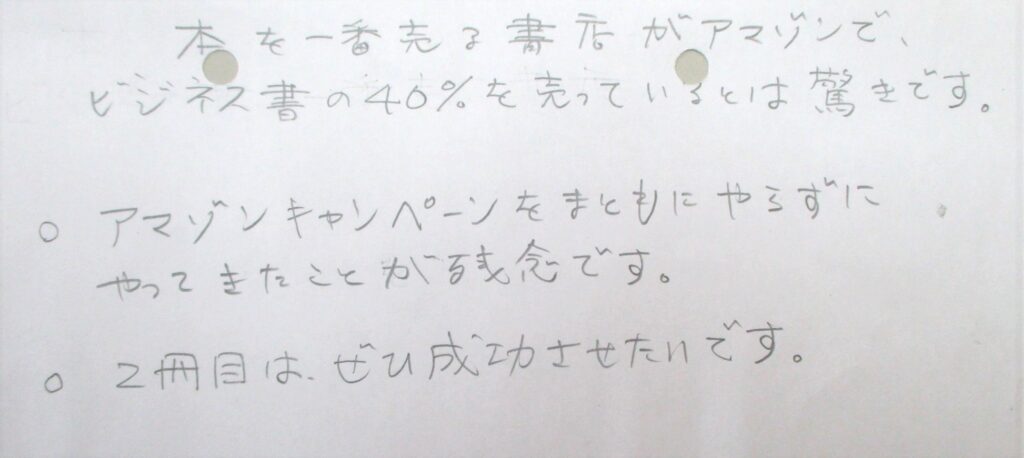 本を一番売る書店がアマゾンで、
ビジネス書の40%を売っているとは驚きです。
○ アマゾンキャンペーンをまともにやらずに
やってきたことが残念です。
○ 2冊目は、ぜひ成功させたいです。